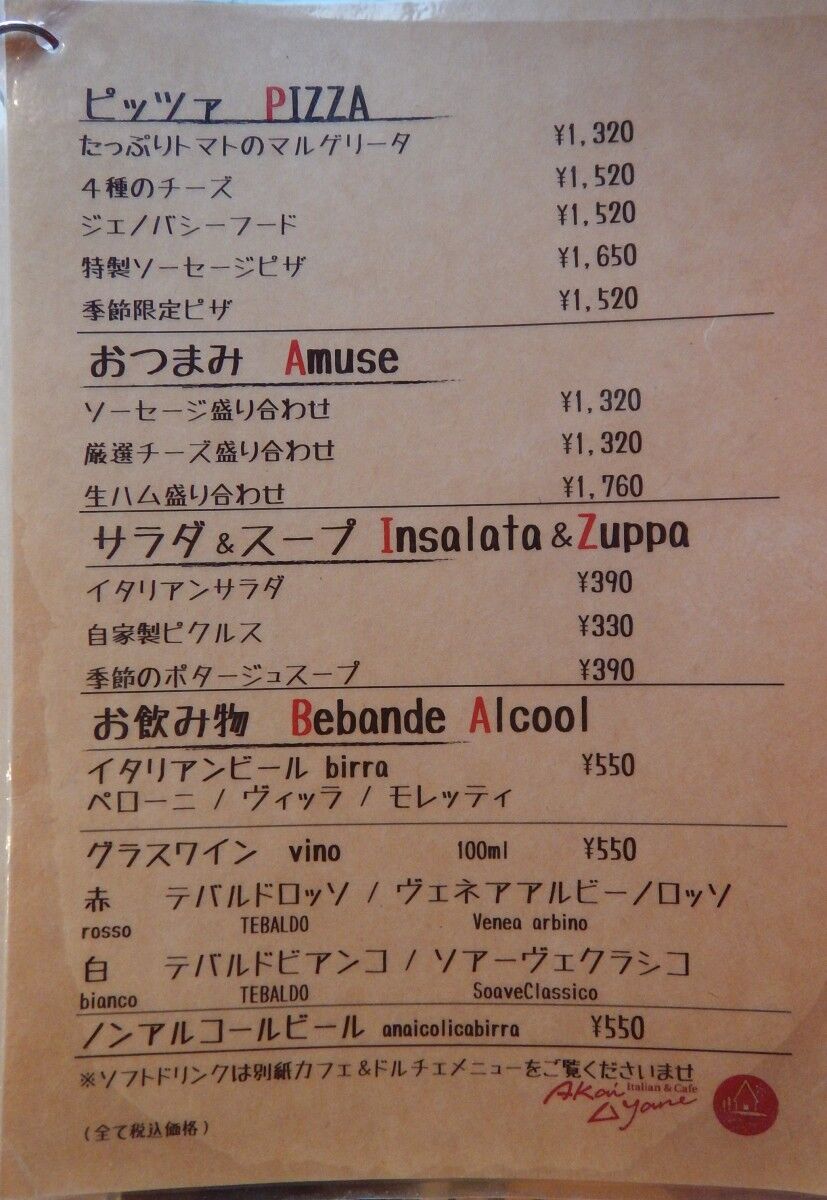 ピッツァ PIZZA
たっぷりトマトのマルゲリータ ¥1,320
4種のチーズ ¥1,520
ジェノバシーフード ¥1,520
特製ソーセージピザ ¥1,650
季節限定ピザ ¥1,520
おつまみ Amuse
ソーセージ盛り合わせ ¥1,320
厳選チーズ盛り合わせ ¥1,320
生ハム盛り合わせ ¥1,760
サラダ&スープ Insalata&Zuppa
イタリアンサラダ ¥390
自家製ピクルス ¥330
季節のポタージュスープ ¥390
お飲み物 Bebande Alcool
イタリアンビール birra ¥550
ペローニ / ヴィッラ / モレッティ
グラスワイン vino 100ml ¥550
赤 テバルドロッソ / ヴェネアアルビーノロッソ
rosso TEBALDO Venea arbino
白 テバルドビアンコ / ソアーヴェクラシコ
bianco TEBALDO SoaveClassico
ノンアルコールビール anaicolicabirra ¥550
※ソフトドリンクは別紙カフェ&ドルチェメニューをご覧くださいませ
Akai Italian & Cafe
Yane
(全て税込価格)